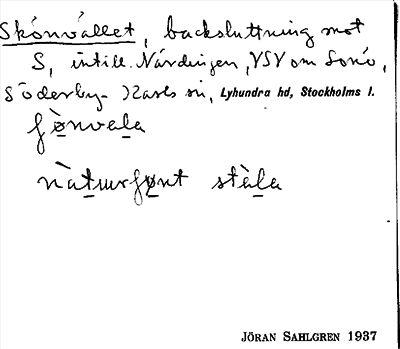 Skönvållet, backsluttning mot
S, intill Närdingen, VSV om Sonö,
Söderby-Karls sn, Lyhundra hd, Stockholms l.
ʃø̀nvala
nàturʃønt stàla
JÖRAN SAHLGREN 1937